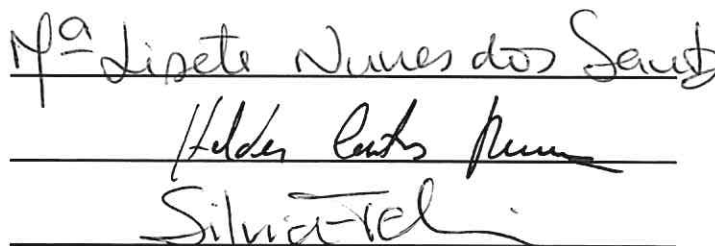 Mª Lisete Nunes dos Santos
Helder Santos Nunes
Silvia